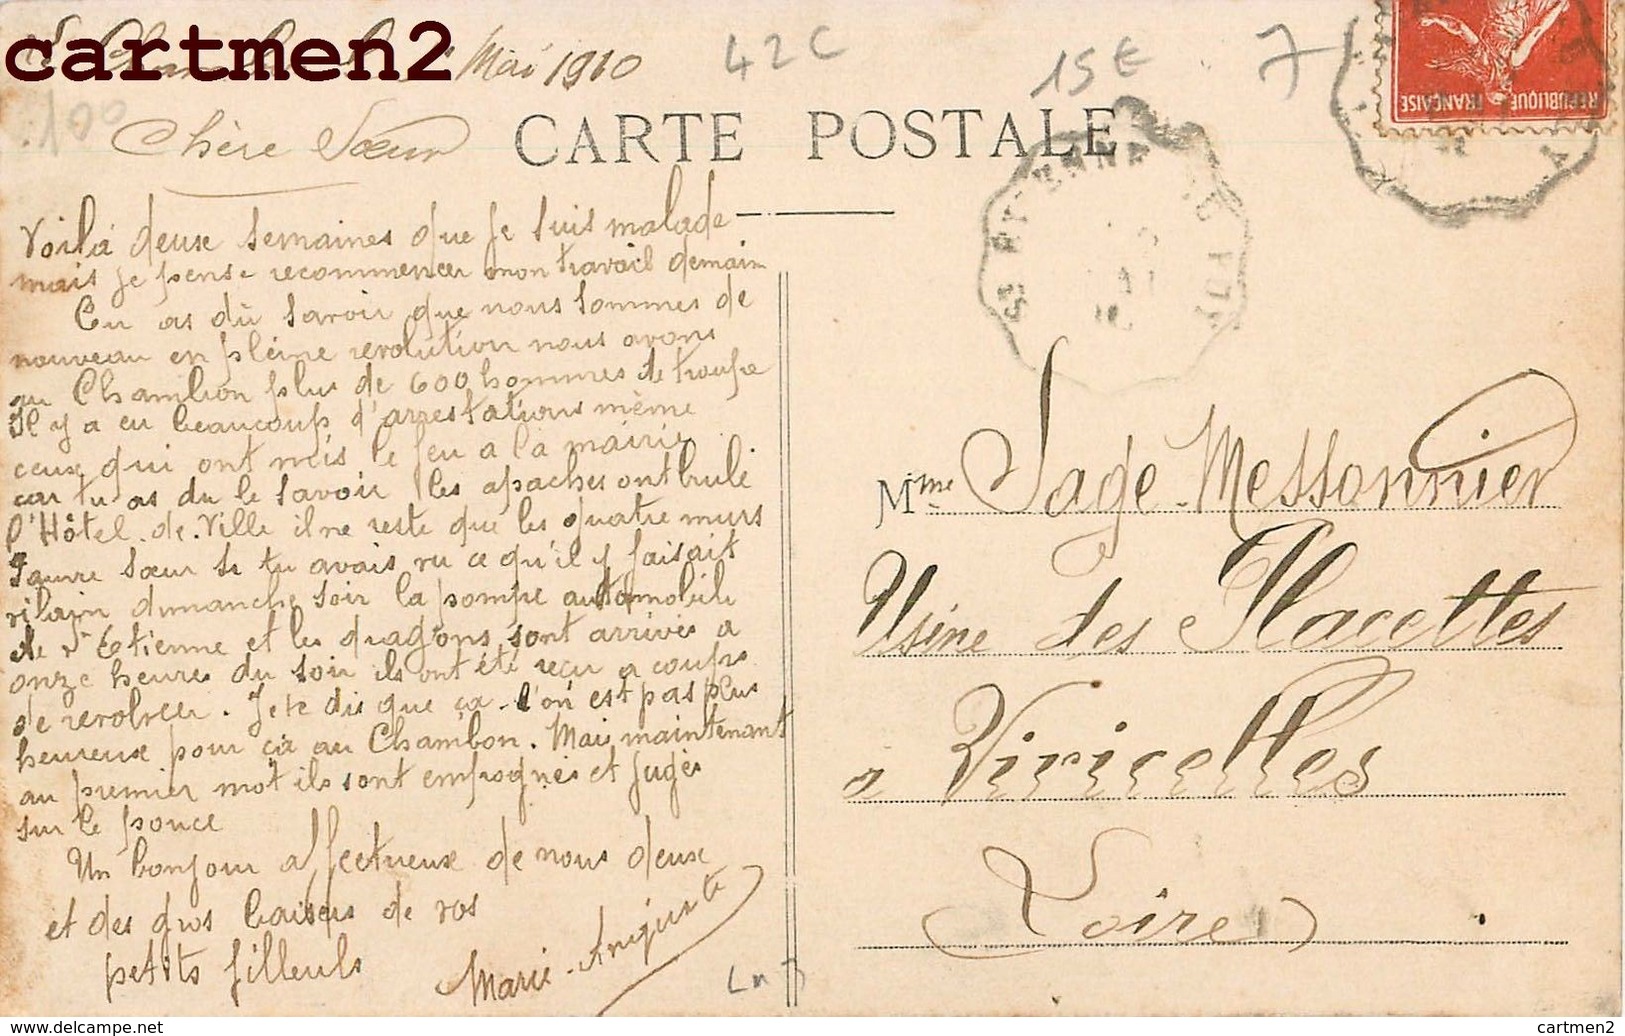 cartmen2
Mai 1910
42 C
15 E
7
100
Chère Sœur
CARTE POSTALE
RÉPUBLIQUE FRANÇAISE
Voilà deuxe semaines que je suis malade
mais je pense recommencer mon travail demain
Tu as dû savoir que nous sommes de
nouveau en pleine revolution nous avons
au Chambon plus de 600 hommes de troupe
Il y a eu beaucoup d'arrestations même
ceuxe qui ont mis le feu a la mairie
car tu as du le savoir les apaches ont brulé
l'Hôtel-de-Ville il ne reste que les quatre murs
Pauvre Sœur si tu avais vu ce qu'il y faisait
vilain dimanche soir la pompe automobile
de St Etienne et les dragons sont arrivés a
onze heures du soir ils ont été reçu a coups
de revolver. Je te dis que ça. l'on est pas plus
heureuxe pour ça au Chambon. Mais maintenant
au premier mot ils sont empognés et jugés
sur le pouce
Un bonjour affectueuxe de nous deuxe
et des gros baisers de vos
petits filleuls
Marie-Anjuste
Mme Sage-Messonnier
Usine des Placettes
a Viricelles
Loire
cartmen2